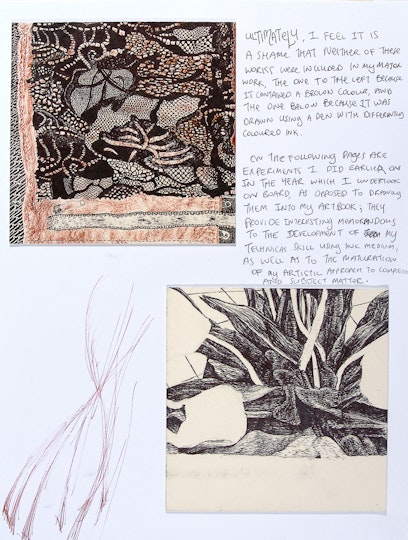 ULTIMATELY, I FEEL IT IS
A SHAME THAT NEITHER OF THESE
WORKS WERE INCLUDED IN MY MAJOR
WORK, THE ONE TO THE LEFT BECAUSE
IT CONTAINED A BROWN COLOUR, AND
THE ONE BELOW BECAUSE IT WAS
DRAWN USING A PEN WITH DIFFERENTLY
COLOURED INK.
ON THE FOLLOWING PAGES ARE
EXPERIMENTS I DID EARLIER ON
IN THE YEAR WHICH I UNDERTOOK
ON BOARD, AS OPPOSED TO DRAWING
THEM INTO MY ARTBOOK; THEY
PROVIDE INTERESTING MEMORANDUMS
TO THE DEVELOPMENT OF MY
TECHNICAL SKILL USING INK MEDIUM,
AS WELL AS TO THE MATURATION
OF MY ARTISTIC APPROACH TO
AND SUBJECT MATTER.